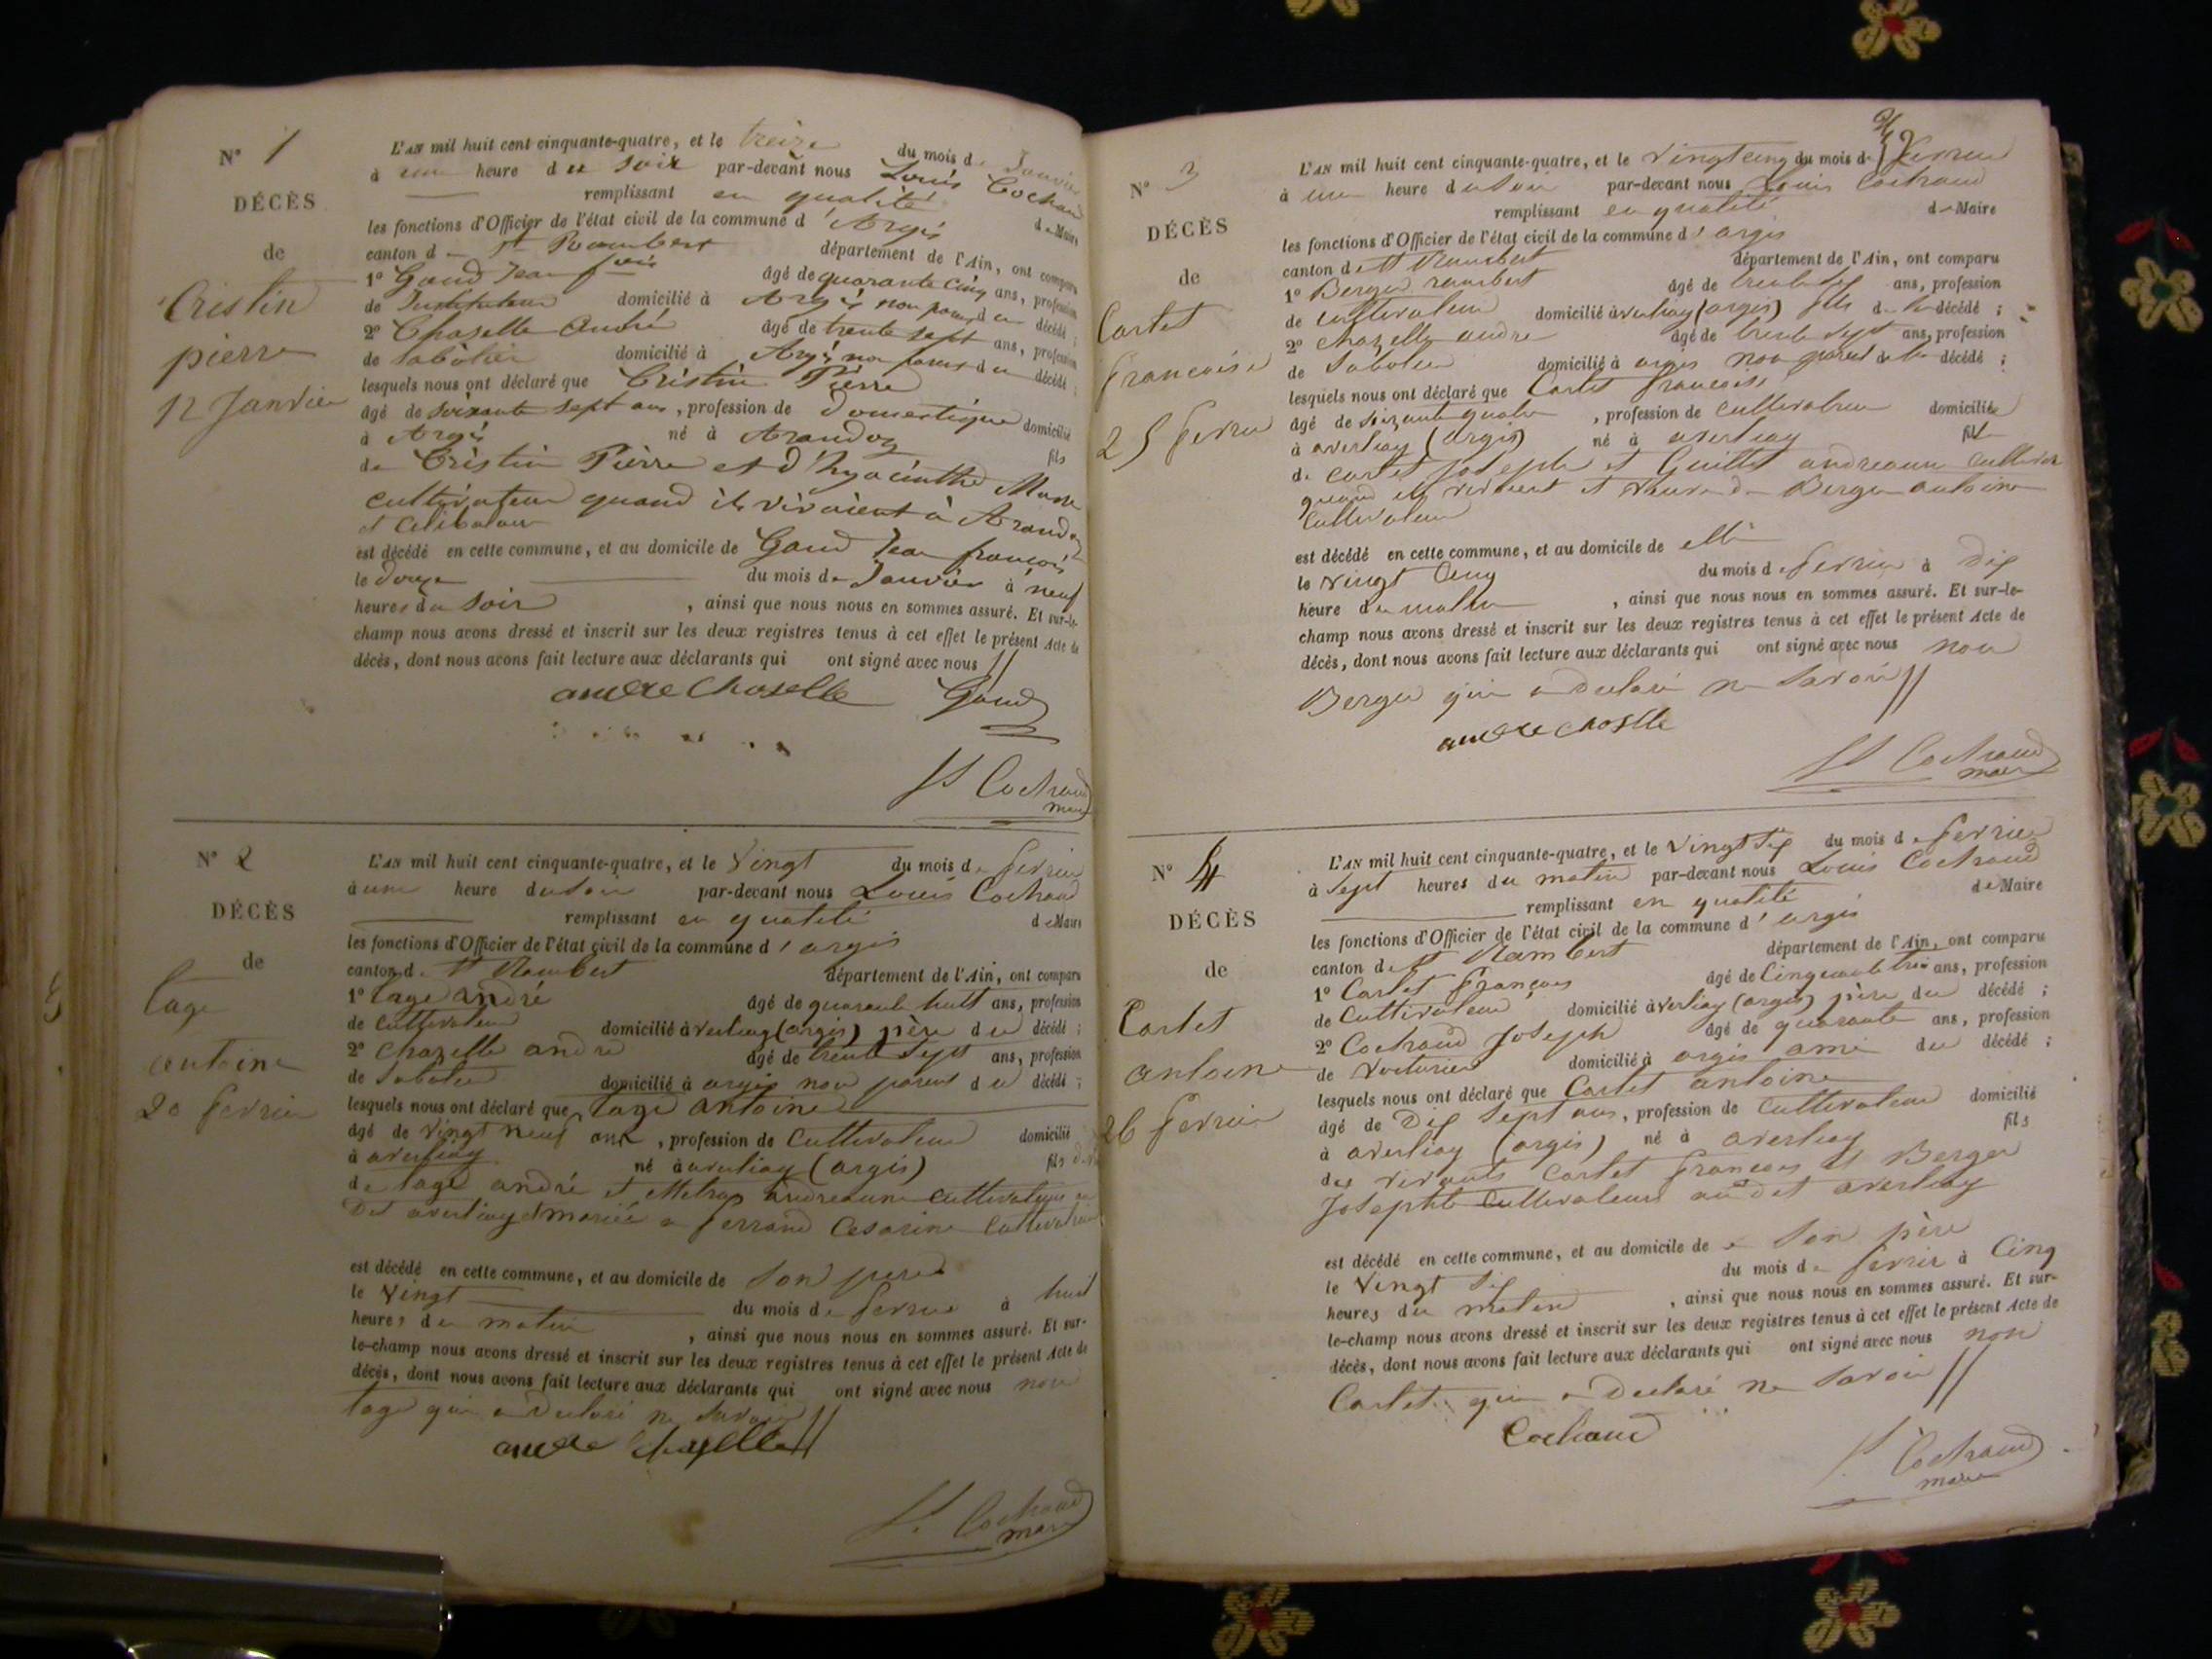 N° 1
DÉCÈS
de
Cristin
pierre
12 Janvier
L'AN mil huit cent cinquante-quatre, et le treize du mois de Janvier
à une heure du soir par-devant nous Louis Cochaud
remplissant en qualité de Maire
les fonctions d'Officier de l'état civil de la commune d'Argis
canton de St Rambert département de l'Ain, ont comparu
1° Gaud Jean fcois âgé de quarante cinq ans, profession
de Instituteur domicilié à Argis non parent du décédé ;
2° Chazelle André âgé de trente sept ans, profession
de Sabotier domicilié à Argis non parent du décédé ;
lesquels nous ont déclaré que Cristin Pierre
âgé de soixante sept ans, profession de Domestique domicilié
à Argis né à Arandas fils
de Cristin Pierre et d'Hyacinthe
cultivateur quand ils vivaient à Arandas
et Célibataire
est décédé en cette commune, et au domicile de Gaud Jean françois
le douze du mois de Janvier à neuf
heures du soir, ainsi que nous nous en sommes assuré. Et sur-le-
champ nous avons dressé et inscrit sur les deux registres tenus à cet effet le présent Acte de
décès, dont nous avons fait lecture aux déclarants qui ont signé avec nous //
andre Chaselle Gaud
Ls Cochaud
maire
N° 2
DÉCÈS
de
tage
antoine
20 fevrier
L'AN mil huit cent cinquante-quatre, et le Vingt du mois de fevrier
à une heure du soir par-devant nous Louis Cochaud
remplissant en qualité de Maire
les fonctions d'Officier de l'état civil de la commune d'argis
canton de St Rambert département de l'Ain, ont comparu
1° tage andré âgé de quarante huit ans, profession
de Cultivateur domicilié à verliay (argis) père du décédé ;
2° chazelle andré âgé de trente sept ans, profession
de Sabotier domicilié à argis non parent du décédé ;
lesquels nous ont déclaré que tage antoine
âgé de vingt neuf ans, profession de Cultivateur domicilié
à averliay né à averliay (argis) fils
de tage andré et andreanne cultivateurs
Dit averliay et mariée a ferrand Cesarine
est décédé en cette commune, et au domicile de Son pere
le Vingt du mois de fevrier à huit
heures du matin, ainsi que nous nous en sommes assuré. Et sur-
le-champ nous avons dressé et inscrit sur les deux registres tenus à cet effet le présent Acte de
décès, dont nous avons fait lecture aux déclarants qui ont signé avec nous non
tage qui a Declaré ne savoir //
andre chazelle
Ls Cochaud
maire
N° 3
DÉCÈS
de
Carlet
francoise
25 fevrier
L'AN mil huit cent cinquante-quatre, et le vingt cinq du mois de fevrier
à une heure du soir par-devant nous Louis Cochaud
remplissant en qualité de Maire
les fonctions d'Officier de l'état civil de la commune d'argis
canton de St Rambert département de l'Ain, ont comparu
1° Berger rambert âgé de ans, profession
de cultivateur domicilié à verliay (argis) fils de la décédé ;
2° chazelle andre âgé de trente sept ans, profession
de Sabotier domicilié à argis non parent de la décédé ;
lesquels nous ont déclaré que Carlet francoise
âgé de soixante quatre, profession de cultivatrice domiciliée
à averliay (argis) né à averliay fille
de carlet Joseph et Guillot andreanne
quand ils vivaient et veuve de Berger antoine
cultivateur
est décédé en cette commune, et au domicile de elle
le vingt Cinq du mois de fevrier à Dix
heure du matin, ainsi que nous nous en sommes assuré. Et sur-le-
champ nous avons dressé et inscrit sur les deux registres tenus à cet effet le présent Acte de
décès, dont nous avons fait lecture aux déclarants qui ont signé avec nous non
Berger qui a Declaré ne Savoir //
andre chaslle
Ls Cochaud
maire
N° 4
DÉCÈS
de
Carlet
antoine
26 fevrier
L'AN mil huit cent cinquante-quatre, et le Vingt Six du mois de fevrier
à Sept heures du matin par-devant nous Louis Cochaud
remplissant en qualité de Maire
les fonctions d'Officier de l'état civil de la commune d'argis
canton de St Rambert département de l'Ain, ont comparu
1° Carlet françois âgé de Cinquante trois ans, profession
de Cultivateur domicilié à verliay (argis) père du décédé ;
2° Cochaud Joseph âgé de quarante ans, profession
de Voiturier domicilié à argis ami du décédé ;
lesquels nous ont déclaré que Carlet antoine
âgé de Dix Sept ans, profession de Cultivateur domicilié
à averliay (argis) né à averliay fils
des vivants Carlet françois et Berger
Josephte Cultivateurs audit averliay
est décédé en cette commune, et au domicile de Son père
le Vingt Six du mois de fevrier à Cinq
heures du matin, ainsi que nous nous en sommes assuré. Et sur-
le-champ nous avons dressé et inscrit sur les deux registres tenus à cet effet le présent Acte de
décès, dont nous avons fait lecture aux déclarants qui ont signé avec nous non
Carlet qui a Declaré ne Savoir //
Cochaud
Ls Cochaud
maire